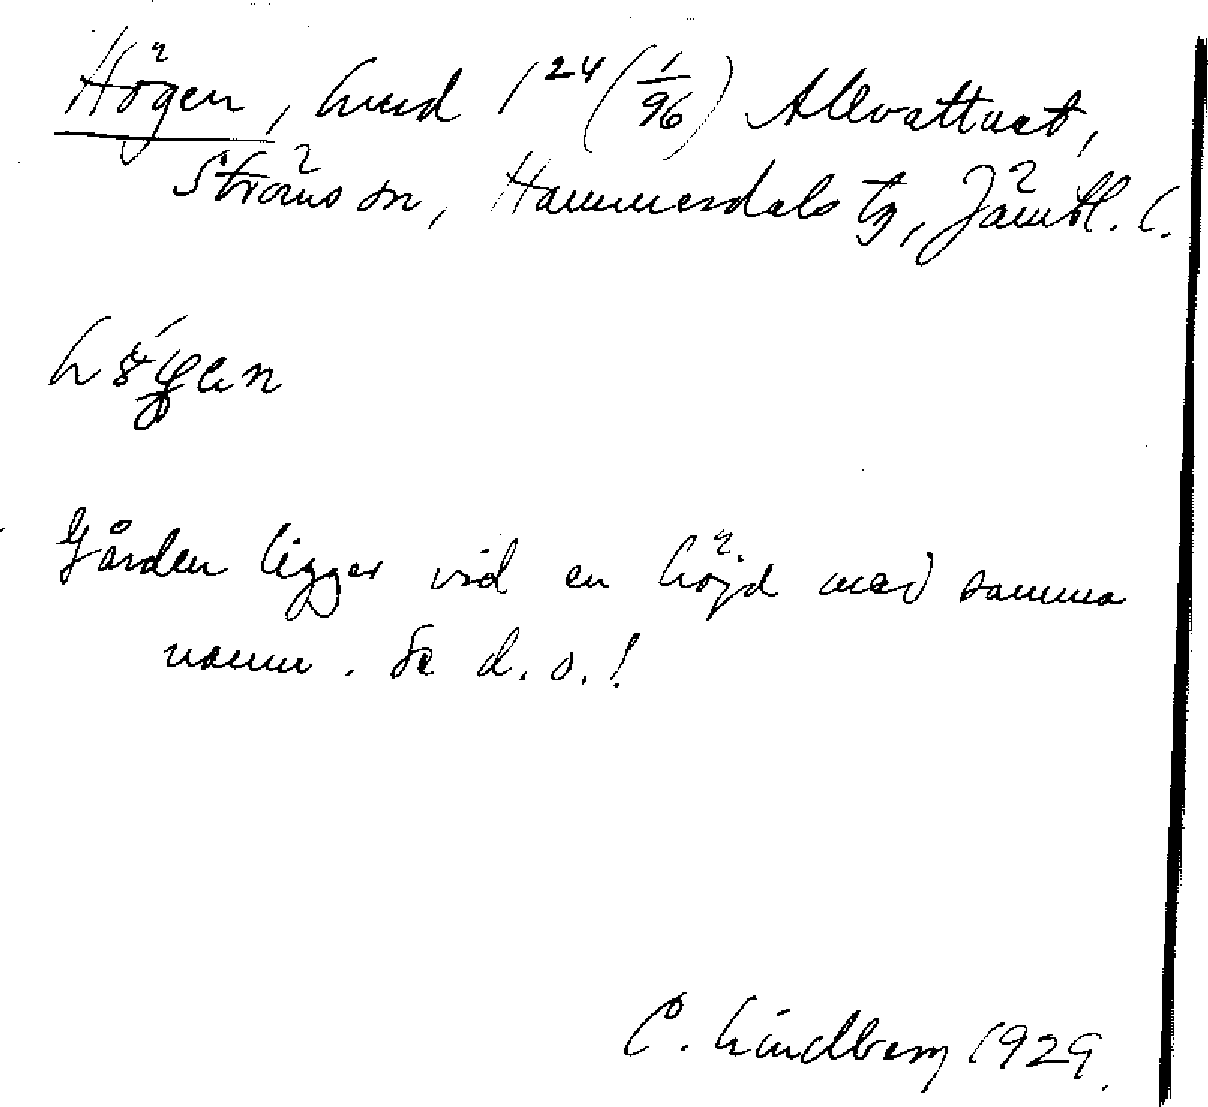 Högen, hmd 1²⁴ (1/96) Allvattnet,
Ströms sn, Hammerdals tg, Jämtl. l.
Gården ligger vid en höjd med samma
namn. Se d. o.!
C. Lindberg 1929.